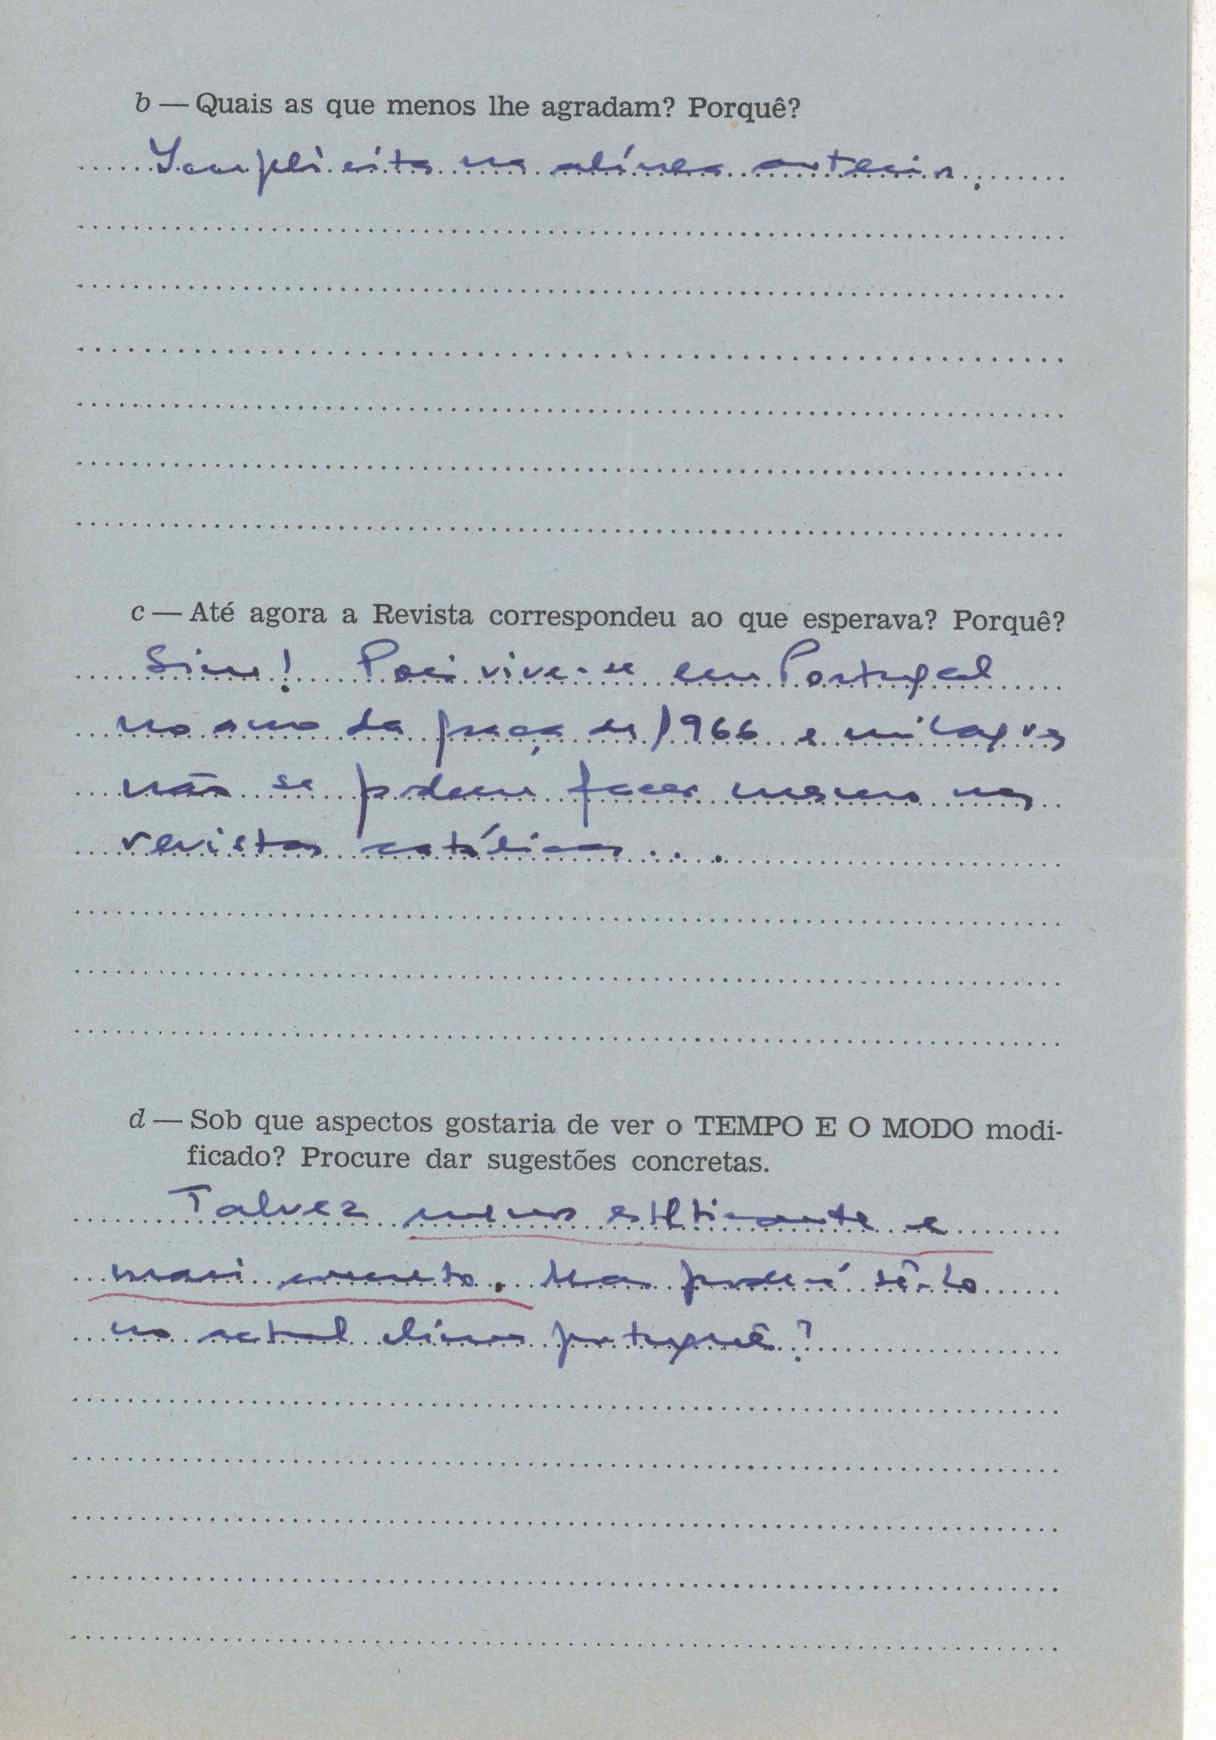 b — Quais as que menos lhe agradam? Porquê?
Implicita na alínea anterior.
c — Até agora a Revista correspondeu ao que esperava? Porquê?
Sim! Pois vive-se em Portugal
no ano da graça de 1966 e milagres
não se podem fazer mesmo nas
revistas católicas...
d — Sob que aspectos gostaria de ver o TEMPO E O MODO modi-
ficado? Procure dar sugestões concretas.
Talvez menos e
mais concreto. Mas poderá sê-lo
no actual clima português?